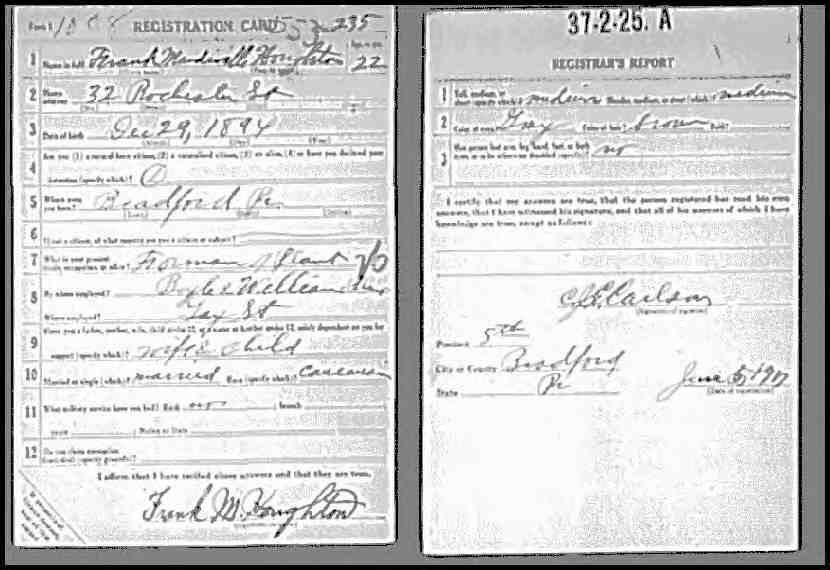 Form 1 REGISTRATION CARD 235
1 Name in full Frank Houghton Age, in yrs. 22
2 Home address 32 Rochester St
3 Date of birth Dec 29, 1894
4 Are you (1) a natural-born citizen, (2) a naturalized citizen, (3) an alien, (4) or have you declared your
intention (specify which)? ①
5 Where were you born? Bradford Pa
6 If not a citizen, of what country are you a citizen or subject?
7 What is your present trade, occupation, or office?
8 By whom employed?
Where employed? St
9 Have you a father, mother, wife, child under 12, or a sister or brother under 12, solely dependent on you for
support (specify which)? wife & child
10 Married or single (which)? married Race (specify which)? Caucasian
11 What military service have you had? Rank no ; branch
years ; Nation or State
12 Do you claim exemption (specify grounds)?
I affirm that I have verified above answers and that they are true.
Frank M. Houghton
37-2-25. A
REGISTRAR'S REPORT
1 Tall, medium, or short (specify which)? medium Slender, medium, or stout (which)? medium
2 Color of eyes? Gray Color of hair? brown Bald?
3 Has person lost arm, leg, hand, foot, or both
no
I certify that my answers are true, that the person registered has read his own
answers, that I have witnessed his signature, and that all of his answers of which I have
knowledge are true, except as follows:
Carlson
(Signature of registrar)
Precinct 5th
City or County Bradford
State Pa
June 5, 1917
(Date of registration)